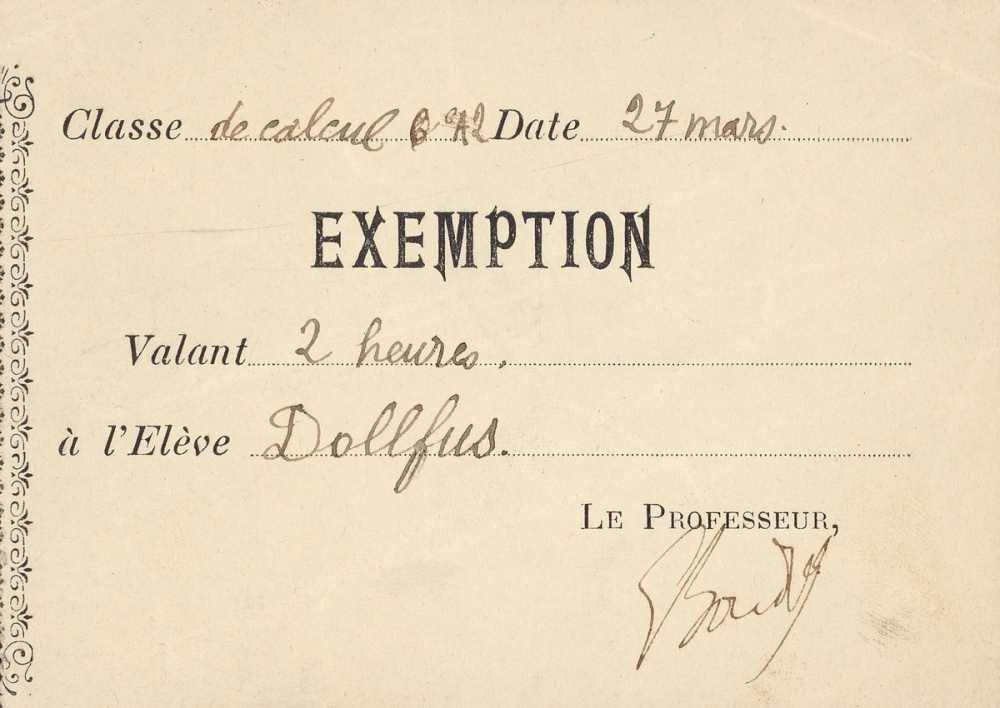 Classe de calcul 6e A2 Date 27 mars.
EXEMPTION
Valant 2 heures.
à l'Elève Dollfus.
LE PROFESSEUR,